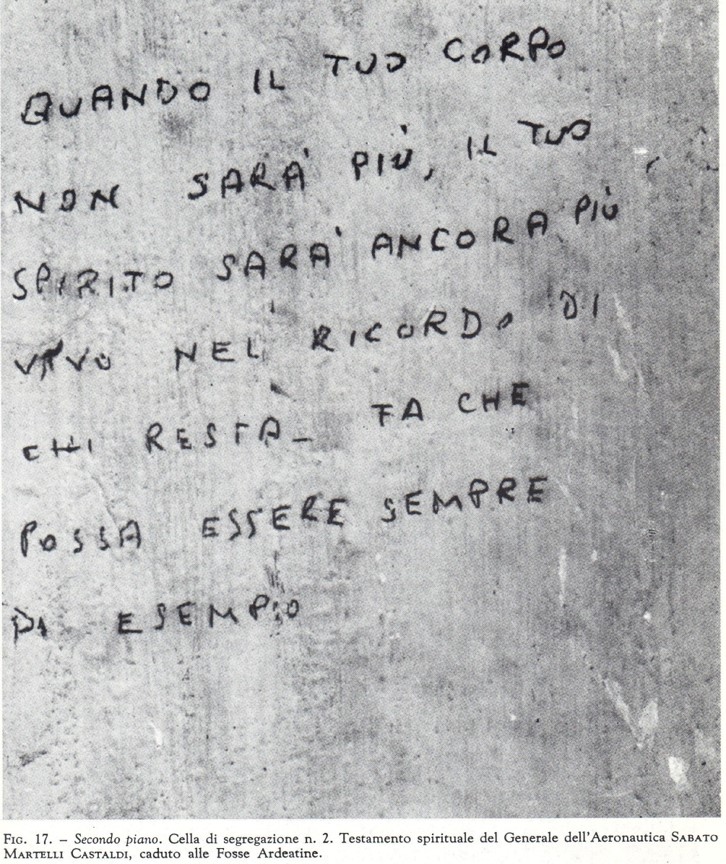 QUANDO IL TUO CORPO
NON SARA' PIÙ, IL TUO
SPIRITO SARA' ANCORA PIÙ
VIVO NEL RICORDO DI
CHI RESTA_ FA CHE
POSSA ESSERE SEMPRE
DI ESEMPIO
FIG. 17. – Secondo piano. Cella di segregazione n. 2. Testamento spirituale del Generale dell'Aeronautica SABATO
MARTELLI CASTALDI, caduto alle Fosse Ardeatine.